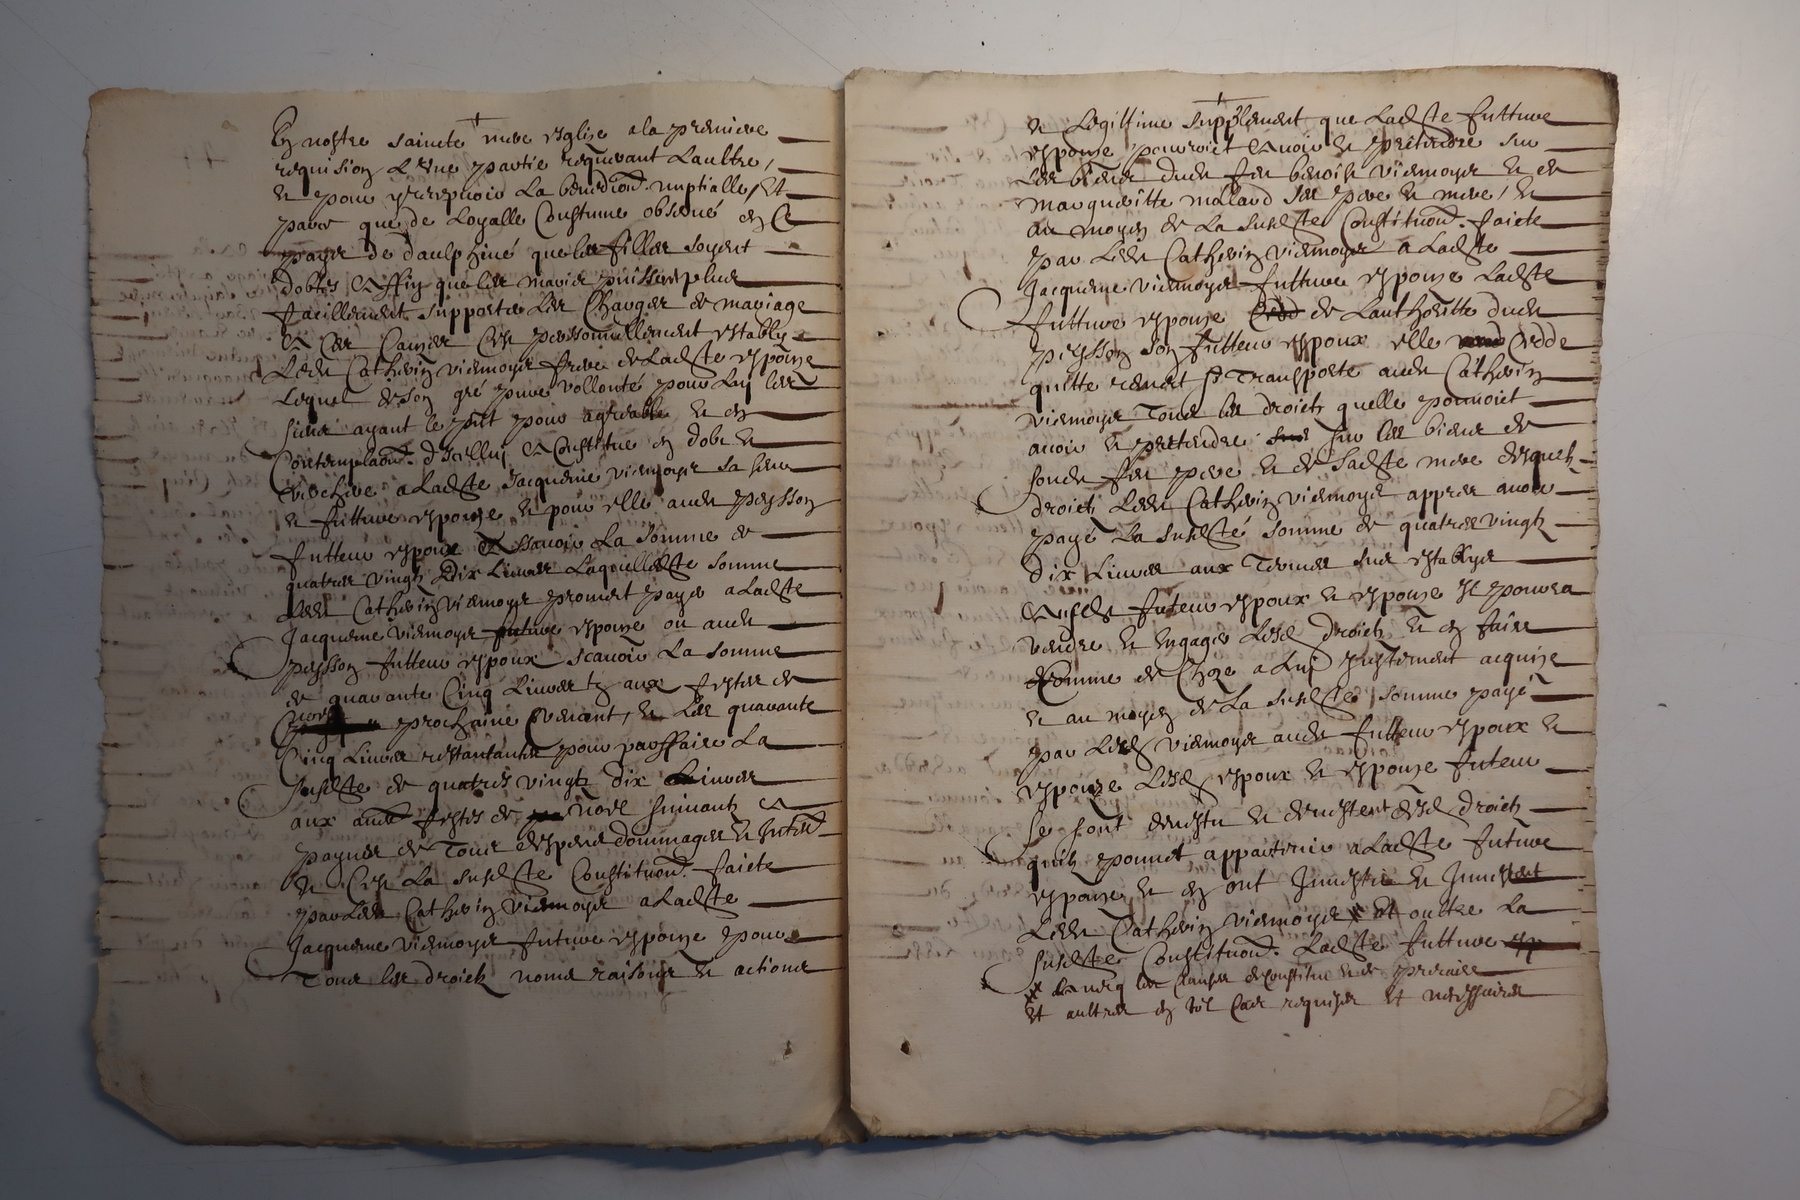 En nostre saincte mere esglise a la premiere
requision L'Une partie requerant Laultre,
et pour y recepvoir La benediction nuptialle, Et
parce que de Loyalle Coustume observé en Ce
payis de daulphiné que les filles soyent
dottés Affin que les maris puissent plus
facillement supporter Les Charges de mariage
A Ces Causes C'est personnellement estably
Ledt Cathelin Viemoyer frere de Ladte espouze
Lequel de son gré pure vollonté pour Luy les
siens ayant le pnt pour agreable et en
Contemplaon d'Icelluy A Constitue en dote et
verchere a Ladte Jacqueme Viemoyer sa soeur
et futture espouze et pour elle audt peysson
futteur espoux scavoir La somme de
quatres vingtz dix Livres Laquelle dte somme
Ledt Cathelin Viemoyer promet payer a Ladte
Jacqueme Viemoyer future espouze ou audt
peysson futteur espoux scavoir La somme
de quarante Cinq Livres tz aux festes de
noel prochaine Venant, et Les quarante
Cinq Livres restantantes pour parffaire La
susdte de quatres vingtz dix Livres
aux audt festes de noel suivantz A
paynes de tous despens dommages et Interestz
et C'est La susdte Constitution faicte
par Ledt Cathelin Viemoyer a Ladte
Jacqueme Viemoyer future espouze pour
Tous les droictz noms raisons et actions
de Legittime supplement que Ladte futture
espouze pourroict Avoir et prétendre sur
Les biens dudt feu benoist Viemoyer et de
margueritte mallard ses pere et mere, et
au moyen de La susdte Constitution faicte
par Ledt Cathelin Viemoyer a Ladte
Jacqueme Viemoyer futture espouze Ladte
futture espouze de Lauthoritte dudt
peysson son futteur espoux elle Cedde
quitte remet et Transporte audt Cathelin
Viemoyer Tous les droictz quelle pourroit
avoir et prétendre sur les biens de
sondt feu pere et de sadte mere desquelz
droictz Ledt Cathelin Viemoyer appres avoir
payé La susdte somme de quatres vingtz
dix Livres aux Termes sus establys
futeur espoux et espouze Il pourra
vendre et Engager Lesd droictz et en faire
comme de Choze a Luy justement acquize
et au moyen de La susdte somme payé
par Ledt Viemoyer audt futteur espoux et
espouze Lesd espoux et espouze futeur
se sont devestu et devestent desd droictz
quilz pouvoit appartenir a Ladte future
espouze et en ont Investu et Investent
Ledt Cathelin Viemoyer # Et oultre La
susdte Constitution Ladte futture
# Avecq les Clauses de Constitut et de precaire
Et aultres en tel Cas requises et necessaires